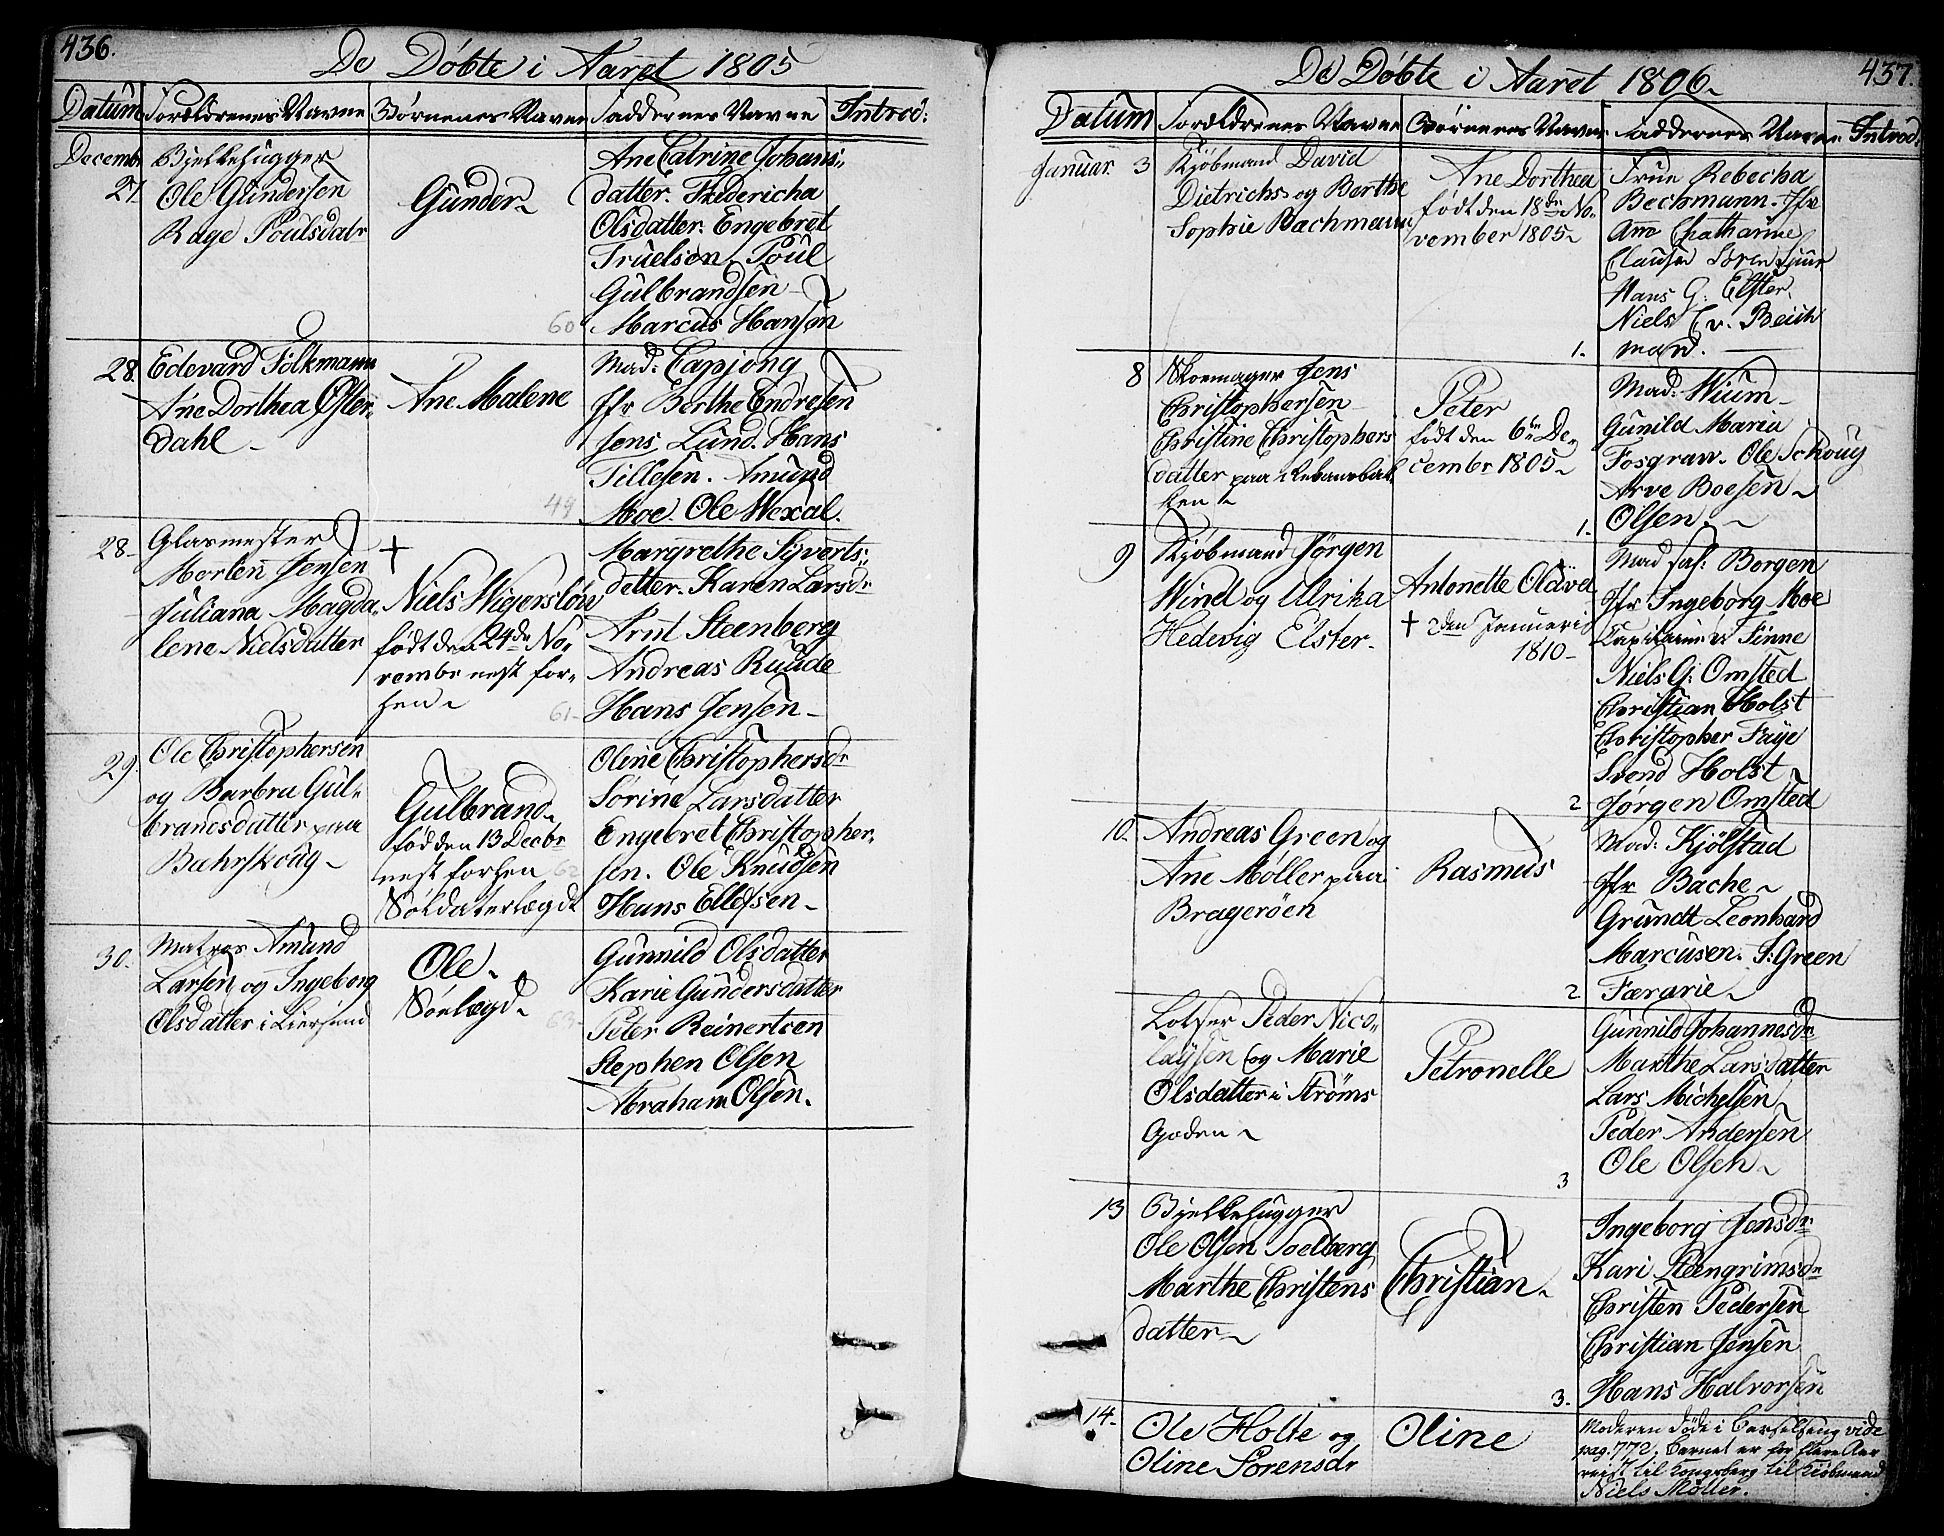 436.
De Döbte i Aaret 1805
Datum Forældrenes Navne Börnenes Navne Faddernes Navne Introd:
Decembr
27
Bjelkehugger
Ole Gundersen
Rage Poulsdatr
Gunder
Ane Catrine Johans:
datter. Fredericha
Olsdatter. Engebret
Truelsen. Poul
Gulbrandsen
Marcus Hansen
60
28.
Edevard Folkmann
Ane Dorthea Öster:
dahl
Ane Malene
Mad: Capjong
Jfr Berthe Endresen
Jens Lund. Hans
Tillesen. Amund
Moe. Ole Wexal.
49
28
Glasmester
Morten Jensen
Juliana Magda
lene Nielsdatter
†
Niels Wigerslöv
födt den 24de No,
vembr nest for,
hen
61
Margrethe Syverts:
datter. Karen Larsdr
Arnt Steenberg
Andreas Ruude
Hans Jensen
29.
Ole Christophersen
og Barbra Gul,
brandsdatter paa
Bæhrskoug
Gulbrand
föd den 13 Decbr
nest forhen 62
Soldaterlægdt
Oline Christophersdr
Sörine Larsdatter
Engebret Christopher,
sen. Ole Knudsen
Hans Ellefsen
30.
Matros Amund
Larsen og Ingeborg
Olsdatter i Liersund
Ole
Söelægd
63
Gunnild Olsdatter
Karie Gundersdatter
Peter Reinertsen
Stephen Olsen
Abraham Olsen.
437.
De Döbte i Aaret 1806
Datum Forældrenes Navne Börnenes Navne Faddernes Navne Introd:
Januar. 3
Kjöbmand David
Dietrichs og Berthe
Sophie Bachmann
Ane Dorthea
födt den 18de No,
vember 1805
1.
Frue Rebecha
Bechmann. Jfr
Ane Chatharine
Clausen
Hans G: Elster.
Niels
mand.
8
Skoemager Jens
Christophersen
Christine Christophers
datter paa
ken
Peter
födt den 6te De,
cember 1805
1.
Mad: Wium
Gunild Maria
Fosgraw. Ole Schoug
Arve Boesen
Olsen.
9
Kjöbmand Jörgen
Wind og Ulrika
Hedevig Elster.
Antonette Olava
† den Januarii
1810
2
Mad sal: Borgen
Jfr Ingeborg Moe
Capitaine v Finne
Niels G: Omsted
Christian Holst
Christopher Faye
Svend Holst
Jörgen Omsted
10.
Andreas Green og
Ane Möller paa
Brageröen
Rasmus
2
Mad: Kjölstad
Jfr Bache
Grundt Leonhard
Marcusen. S: Green
Færarie
Lotser Peder Nico,
laysen og Marie
Olsdatter i Ströms
Goden
Petronelle
3
Gunnild Johannesdr
Marthe Larsdatter
Lars Michelsen
Peder Andersen
Ole Olsen
13
Bjelkehugger
Ole Olsen Soelberg
Marthe Christens
datter
Christian
3.
Ingeborg Jensdr
Kari Steengrimsdr
Christen Pedersen
Christian Jensen
Hans Halvorsen
14.
Ole Holte og
Oline Sörensdr
Oline
Moderen döde i Barselseng vide
pag. 772, Barnet er for flere Aar
reist til Kongsberg til Kiöbmand
Niels Möller.